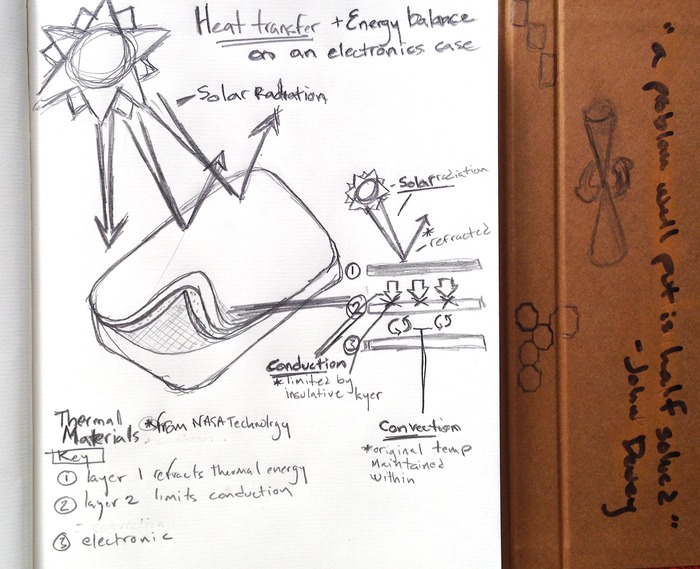 Heat transfer + Energy balance
on an electronics case
Solar Radiation
Solar radiation
* refracted
1
2
3
Conduction
* limited by
insulative layer
Convection
* original temp
Maintained
within
Thermal
Materials * from NASA Technology
Key
1 layer 1 refracts thermal energy
2 layer 2 limits conduction
3 electronic
"a poblam well put is half solved"
- John Dewey